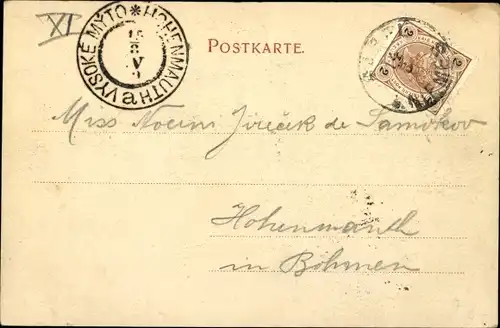 XI
VYSOKÉ MÝTO * HOHENMAUTH
15
8
V
POSTKARTE.
2 2
2
Miss Noëmi Jireček de Samokov
Hohenmauth
in Böhmen